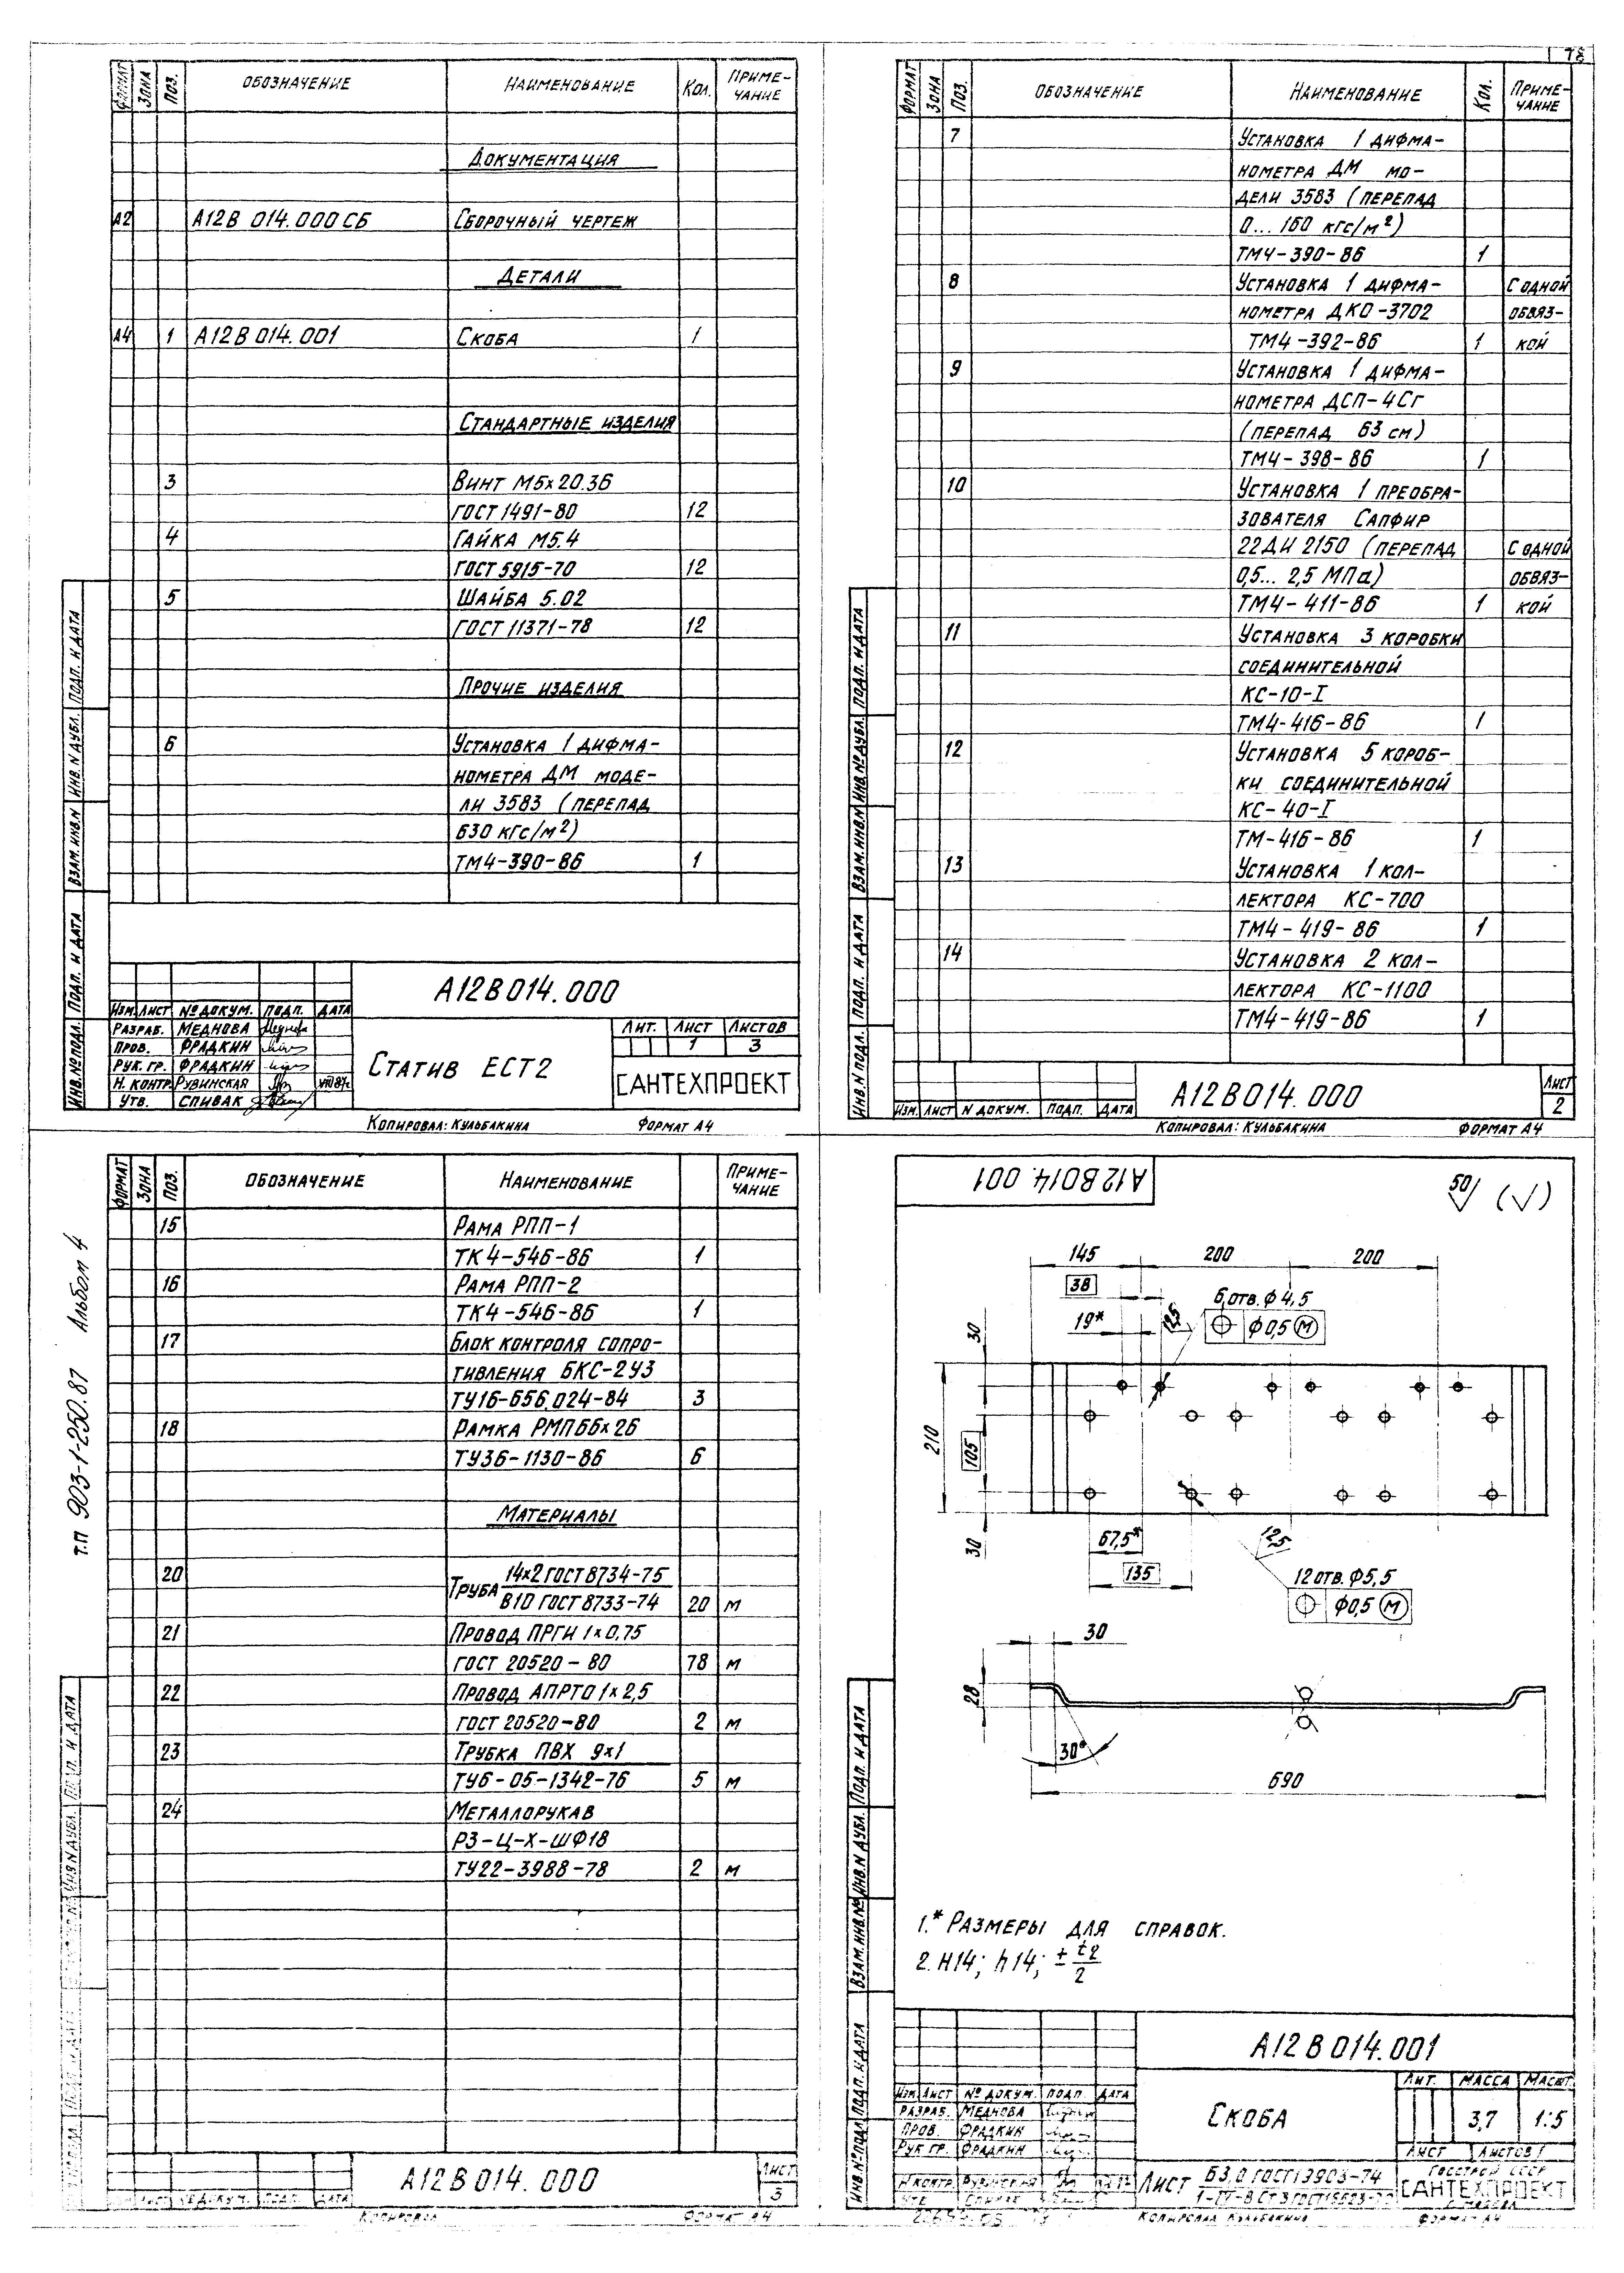 78
ФОРМАТ ЗОНА ПОЗ. ОБОЗНАЧЕНИЕ НАИМЕНОВАНИЕ КОЛ. ПРИМЕ-
ЧАНИЕ
ДОКУМЕНТАЦИЯ
А2 А12В 014.000 СБ СБОРОЧНЫЙ ЧЕРТЕЖ
ДЕТАЛИ
А4 1 А12В 014.001 СКОБА 1
СТАНДАРТНЫЕ ИЗДЕЛИЯ
3 ВИНТ М5х20.36
ГОСТ 1491-80 12
4 ГАЙКА М5.4
ГОСТ 5915-70 12
5 ШАЙБА 5.02
ГОСТ 11371-78 12
ПРОЧИЕ ИЗДЕЛИЯ
6 УСТАНОВКА 1 ДИФМА-
НОМЕТРА ДМ МОДЕ-
ЛИ 3583 (ПЕРЕПАД
630 кгс/м²)
ТМ4-390-86 1
ИНВ.№ПОДЛ. ПОДП. И ДАТА ВЗАМ. ИНВ.N ИНВ. N ДУБЛ. ПОДП. И ДАТА
А12В014.000
ИЗМ. ЛИСТ № ДОКУМ. ПОДП. ДАТА
РАЗРАБ. МЕДНОВА
ПРОВ. ФРАДКИН
РУК. ГР. ФРАДКИН
Н. КОНТР. РУВИНСКАЯ
УТВ. СПИВАК
СТАТИВ ЕСТ2
ЛИТ. ЛИСТ ЛИСТОВ
1 3
САНТЕХПРОЕКТ
КОПИРОВАЛ: КУЛЬБАКИНА ФОРМАТ А4
ФОРМАТ ЗОНА ПОЗ. ОБОЗНАЧЕНИЕ НАИМЕНОВАНИЕ КОЛ. ПРИМЕ-
ЧАНИЕ
7 УСТАНОВКА 1 ДИФМА-
НОМЕТРА ДМ МО-
ДЕЛИ 3583 (ПЕРЕПАД
0... 160 кгс/м²)
ТМ4-390-86 1
8 УСТАНОВКА 1 ДИФМА- С ОДНОЙ
НОМЕТРА ДКО-3702 ОБВЯЗ-
ТМ4-392-86 1 КОЙ
9 УСТАНОВКА 1 ДИФМА-
НОМЕТРА ДСП-4Сг
(ПЕРЕПАД 63 см)
ТМ4-398-86 1
10 УСТАНОВКА 1 ПРЕОБРА-
ЗОВАТЕЛЯ САПФИР
22ДИ 2150 (ПЕРЕПАД С ОДНОЙ
0,5... 2,5 МПа) ОБВЯЗ-
ТМ4-411-86 1 КОЙ
11 УСТАНОВКА 3 КОРОБКИ
СОЕДИНИТЕЛЬНОЙ
КС-10-I
ТМ4-416-86 1
12 УСТАНОВКА 5 КОРОБ-
КИ СОЕДИНИТЕЛЬНОЙ
КС-40-I
ТМ-416-86 1
13 УСТАНОВКА 1 КОЛ-
ЛЕКТОРА КС-700
ТМ4-419-86 1
14 УСТАНОВКА 2 КОЛ-
ЛЕКТОРА КС-1100
ТМ4-419-86 1
ИНВ.N ПОДЛ. ПОДП. И ДАТА ВЗАМ. ИНВ.N ИНВ.№ДУБЛ. ПОДП. И ДАТА
ИЗМ. ЛИСТ N ДОКУМ. ПОДП. ДАТА
А12В014.000
ЛИСТ
2
КОПИРОВАЛ: КУЛЬБАКИНА ФОРМАТ А4
Т.П 903-1-250.87 Альбом 4
ФОРМАТ ЗОНА ПОЗ. ОБОЗНАЧЕНИЕ НАИМЕНОВАНИЕ ПРИМЕ-
ЧАНИЕ
15 РАМА РПП-1
ТК4-546-86 1
16 РАМА РПП-2
ТК4-546-86 1
17 БЛОК КОНТРОЛЯ СОПРО-
ТИВЛЕНИЯ БКС-2У3
ТУ16-656.024-84 3
18 РАМКА РМП66х26
ТУ36-1130-86 6
МАТЕРИАЛЫ
20 ТРУБА 14х2 ГОСТ 8734-75
В10 ГОСТ 8733-74 20 м
21 ПРОВОД ПРГИ 1х0,75
ГОСТ 20520-80 78 м
22 ПРОВОД АПРТО 1х2,5
ГОСТ 20520-80 2 м
23 ТРУБКА ПВХ 9х1
ТУ6-05-1342-76 5 м
24 МЕТАЛЛОРУКАВ
РЗ-Ц-Х-ШФ18
ТУ22-3988-78 2 м
ПОДП. И ДАТА
ИНВ.N ДУБЛ.
А12В014.000
ЛИСТ
3
КОПИРОВАЛ ФОРМАТ А4
А12В014.001
50 (√)
145 200 200
38 6 отв. Ф4,5
19* 12,5 Ф0,5 М
30
210
105
30
67,5* 12,5
135 12 отв. Ф5,5
Ф0,5 М
30
28
30°
690
1.* РАЗМЕРЫ ДЛЯ СПРАВОК.
2. Н14; h14; ± t2/2
ИНВ.№ПОДЛ ПОДП. И ДАТА ВЗАМ. ИНВ.№ ИНВ.N ДУБЛ. ПОДП. И ДАТА
А12В014.001
ИЗМ. ЛИСТ № ДОКУМ. ПОДП. ДАТА
РАЗРАБ. МЕДНОВА
ПРОВ. ФРАДКИН
РУК ГР. ФРАДКИН
Н КОНТР. РУВИНСКАЯ
УТВ. СПИВАК
СКОБА
ЛИТ. МАССА МАСШТ.
3,7 1:5
ЛИСТ ЛИСТОВ 1
ЛИСТ Б3,0 ГОСТ 19903-74
ГОССТРОЙ СССР
САНТЕХПРОЕКТ
КОПИРОВАЛ КУЛЬБАКИНА ФОРМАТ А4